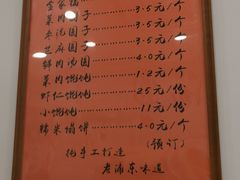 菜肉圆子 3.5元/个
赤沙圆子 3.5元/个
芝麻圆子 3.5元/个
鲜肉汤圆 4.0元/个
菜肉馄饨 1.2元/个
虾仁馄饨 25元/份
小馄饨 11元/份
糯米 4.0元/个
(预订)
纯手工打造
老浦东味道